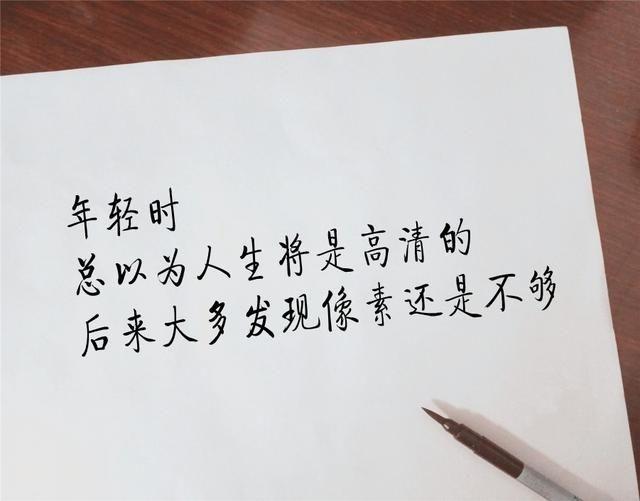 年轻时
总以为人生将是高清的
后来大多发现像素还是不够